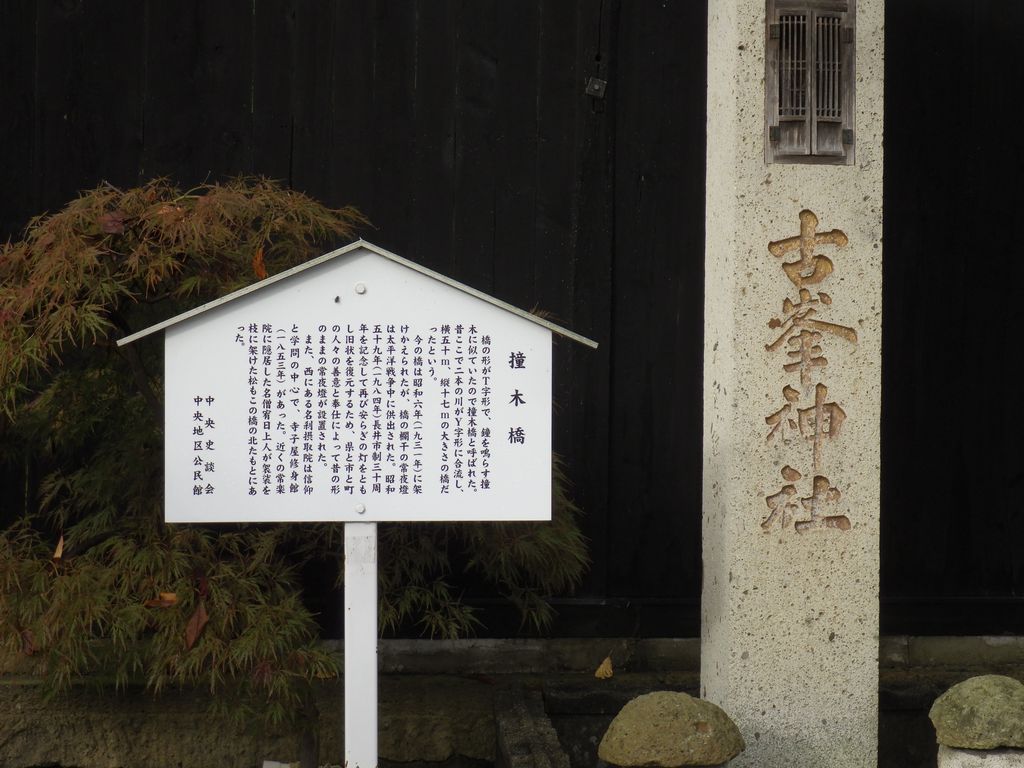 撞木橋
橋の形がT字形で、鐘を鳴らす撞
木に似ていたので撞木橋と呼ばれた。
昔ここで二本の川がY字形に合流し、
横五十m、縦十七mの大きさの橋だ
ったという。
今の橋は昭和六年(一九三一年)に架
けかえられたが、橋の欄干の常夜燈
は太平洋戦争中に供出された。昭和
五十九年(一九八四年)長井市制三十周
年を記念して再び安らぎの灯をとも
し旧状を復元するため、県と市と町
の人々の善意と奉仕によって昔の形
のままの常夜燈が設置された。
また、西にある名刹摂取院は信仰
と学問の中心で、寺子屋修身館
(一八五三年)があった。近くの常楽
院に隠居した名僧宥日上人が袈裟を
枝に架けた松もこの橋の北たもとにあ
った。
中央史談会
中央地区公民館
古峯神社